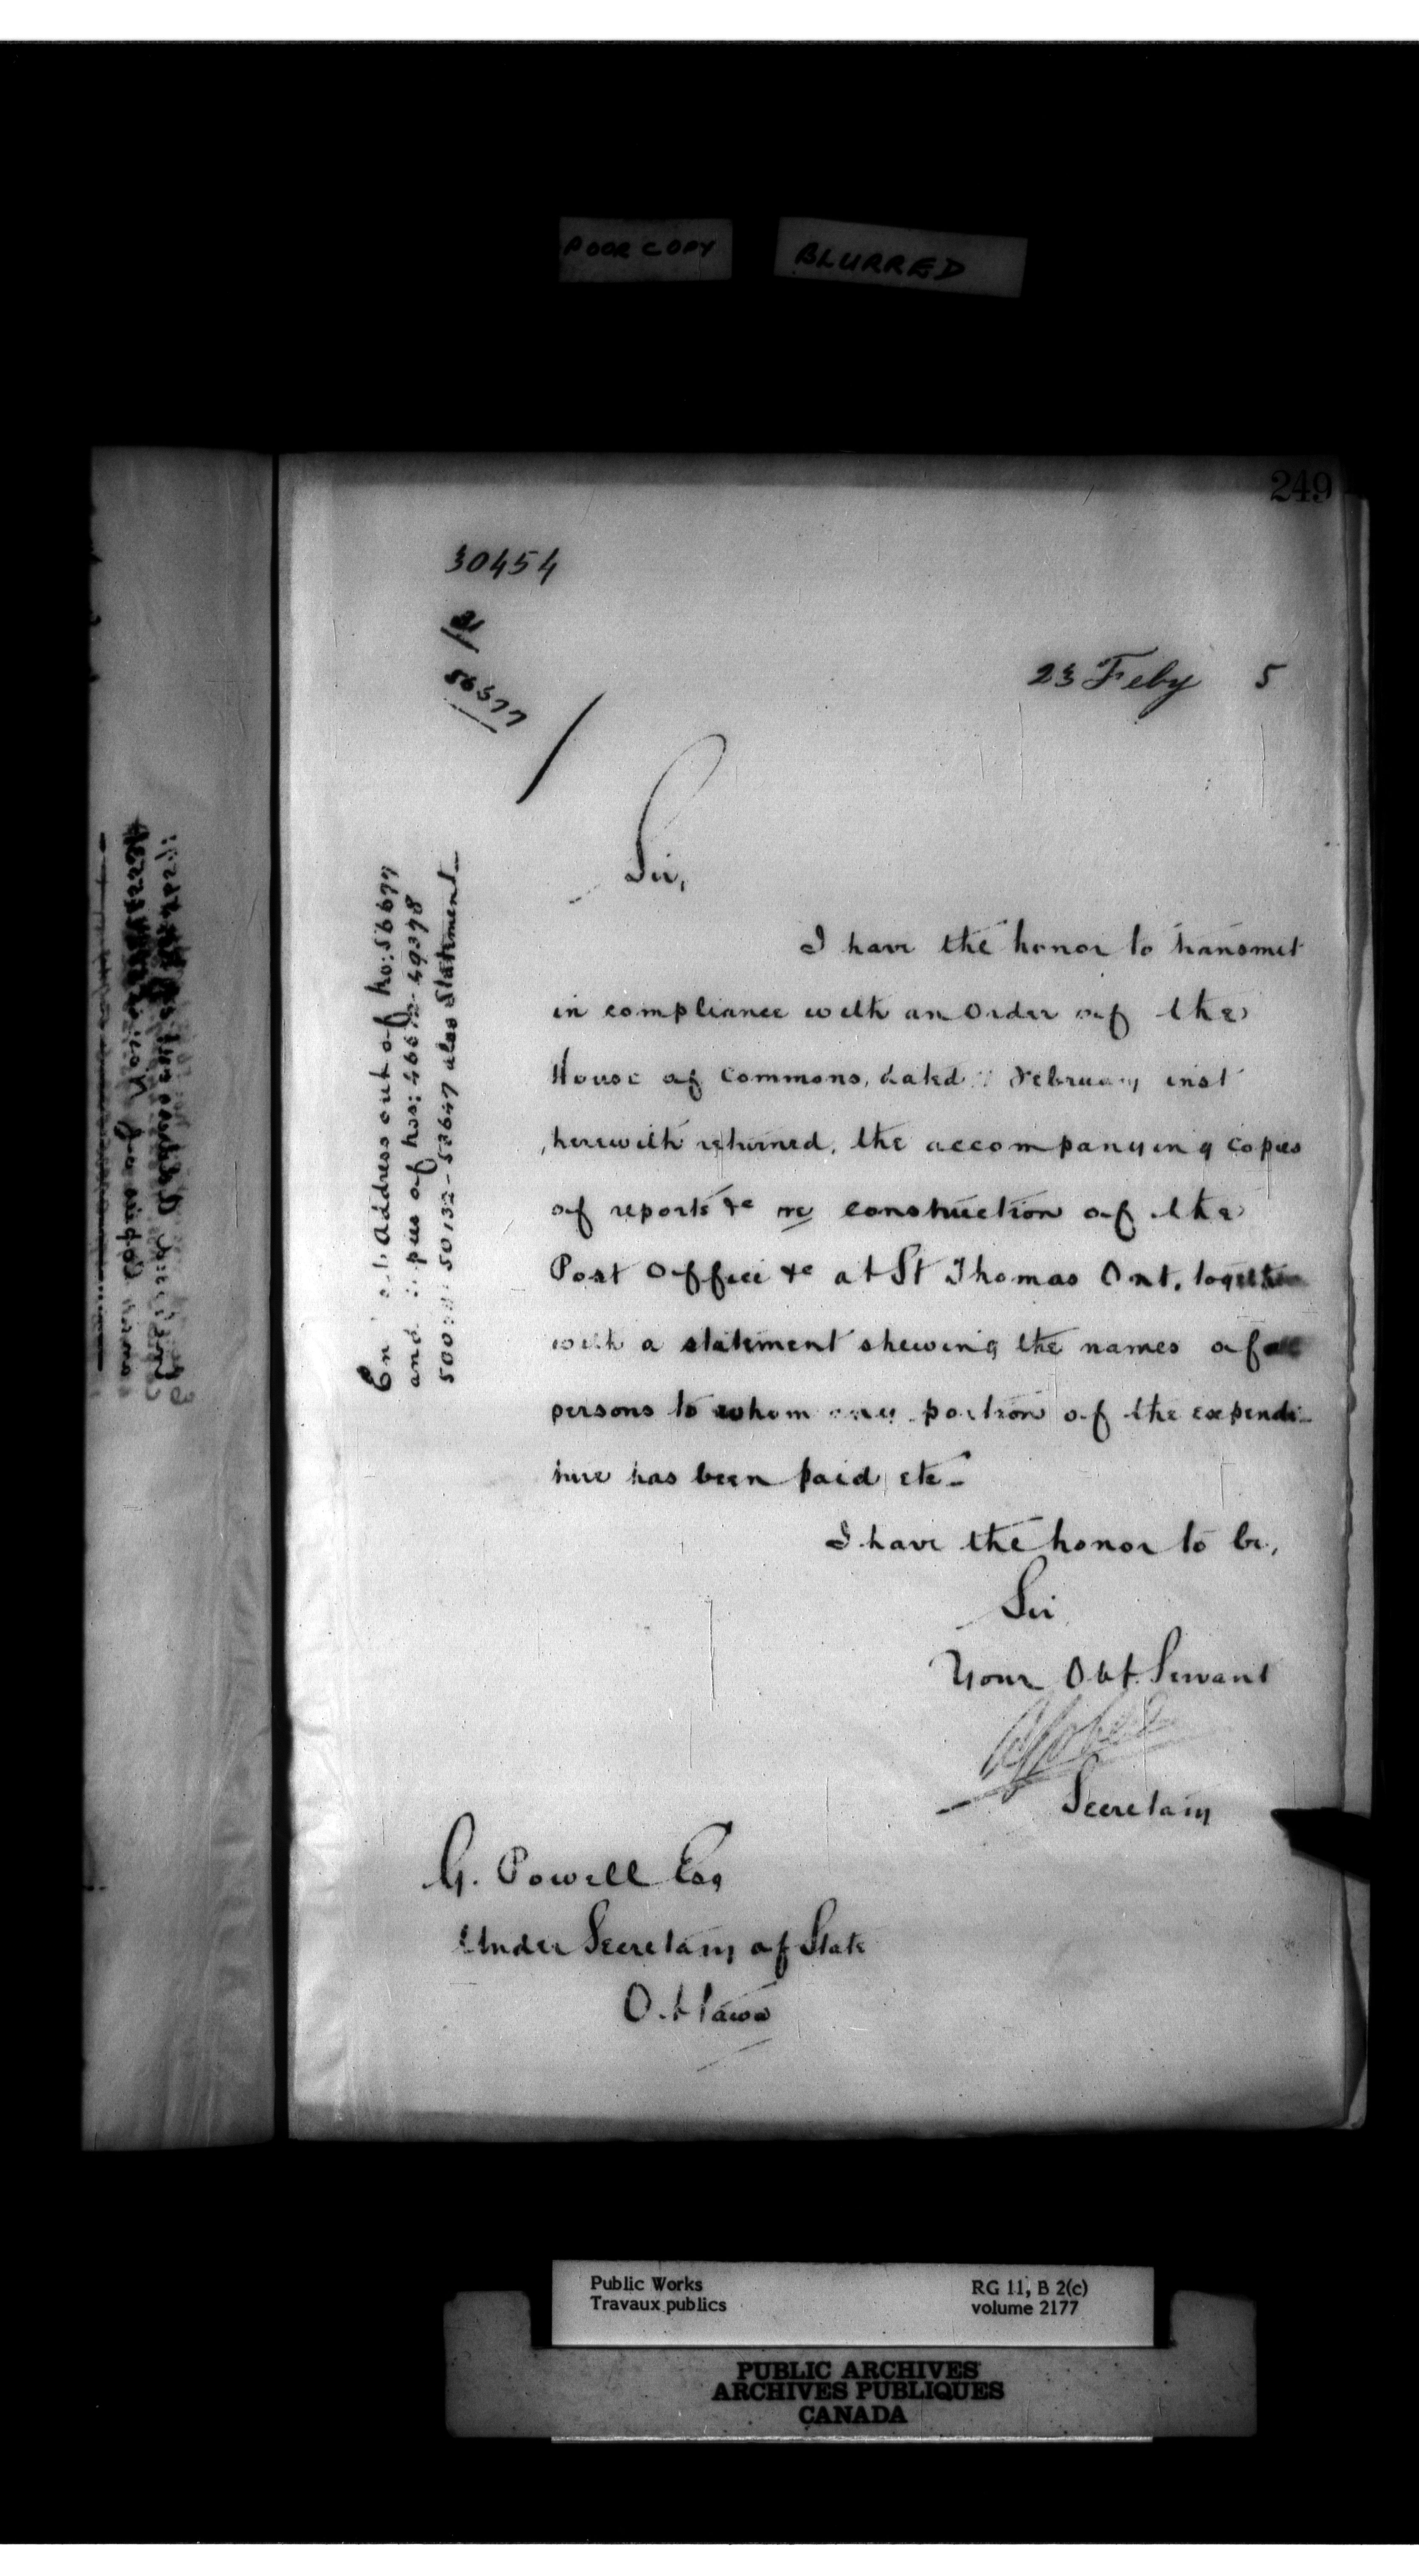 POOR COPY BLURRED
249
30454
21
56377
23 Feby 5
Sir,
I have the honor to transmit
in compliance with an Order of the
House of Commons, dated February inst
herewith returned, the accompanying copies
of reports &c re construction of the
Post Office &c at St Thomas Ont, together
with a statement shewing the names of all
persons to whom any portion of the expendi-
ture has been paid etc-
I have the honor to be,
Sir
Your Obt Servant
Secretary
G. Powell Esq
Under Secretary of State
Ottawa
Address out of No: 56677
and of Nos: 49378
50132 - 53647 also Statement
Public Works RG 11, B 2(c)
Travaux publics volume 2177
PUBLIC ARCHIVES
ARCHIVES PUBLIQUES
CANADA